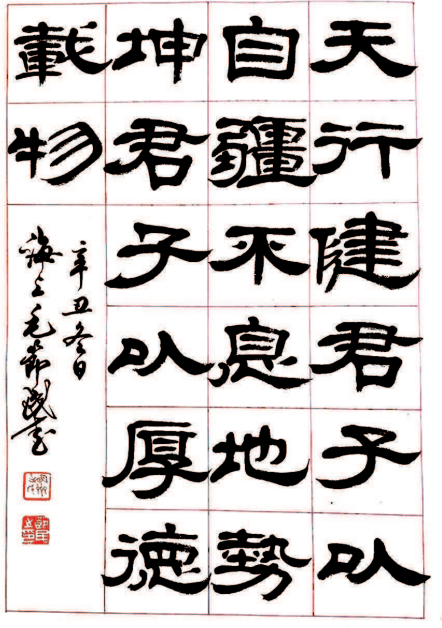 天行健君子以
自疆不息地勢
坤君子以厚德
載物
辛丑冬日
海上毛節民書